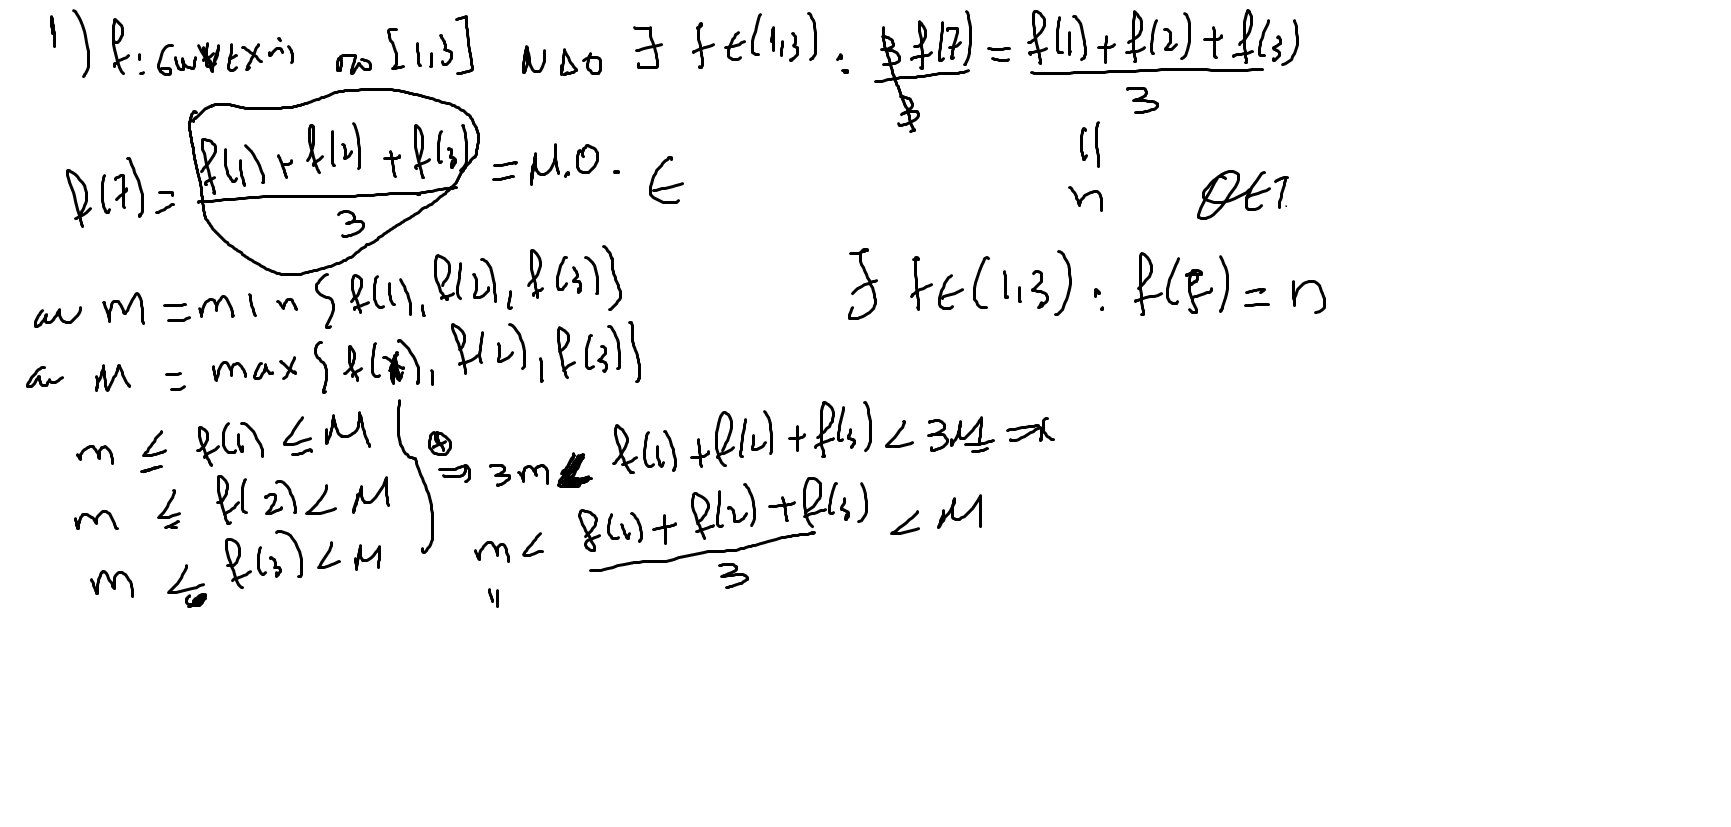 1) f: συνεχής στο [1,3] ΝΔΟ ∃ ξ∈(1,3): 3f(ξ)/3 = (f(1)+f(2)+f(3))/3
f(ξ) = (f(1)+f(2)+f(3))/3 = Μ.Ο. ∈
η ΘΕΤ
αν m = min{f(1), f(2), f(3)}
∃ ξ∈(1,3): f(ξ)=η
αν M = max{f(1), f(2), f(3)}
m ≤ f(1) ≤ M
m ≤ f(2) < M
m ≤ f(3) < M
⊕ ⇒ 3m < f(1)+f(2)+f(3) < 3M ⇒
m < (f(1)+f(2)+f(3))/3 < M